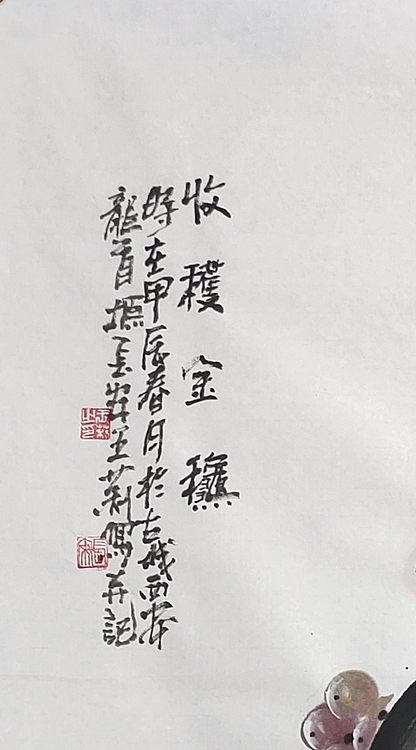 收穫金穐
時在甲辰春月於古城西安
龍首塬 王莉寫並記